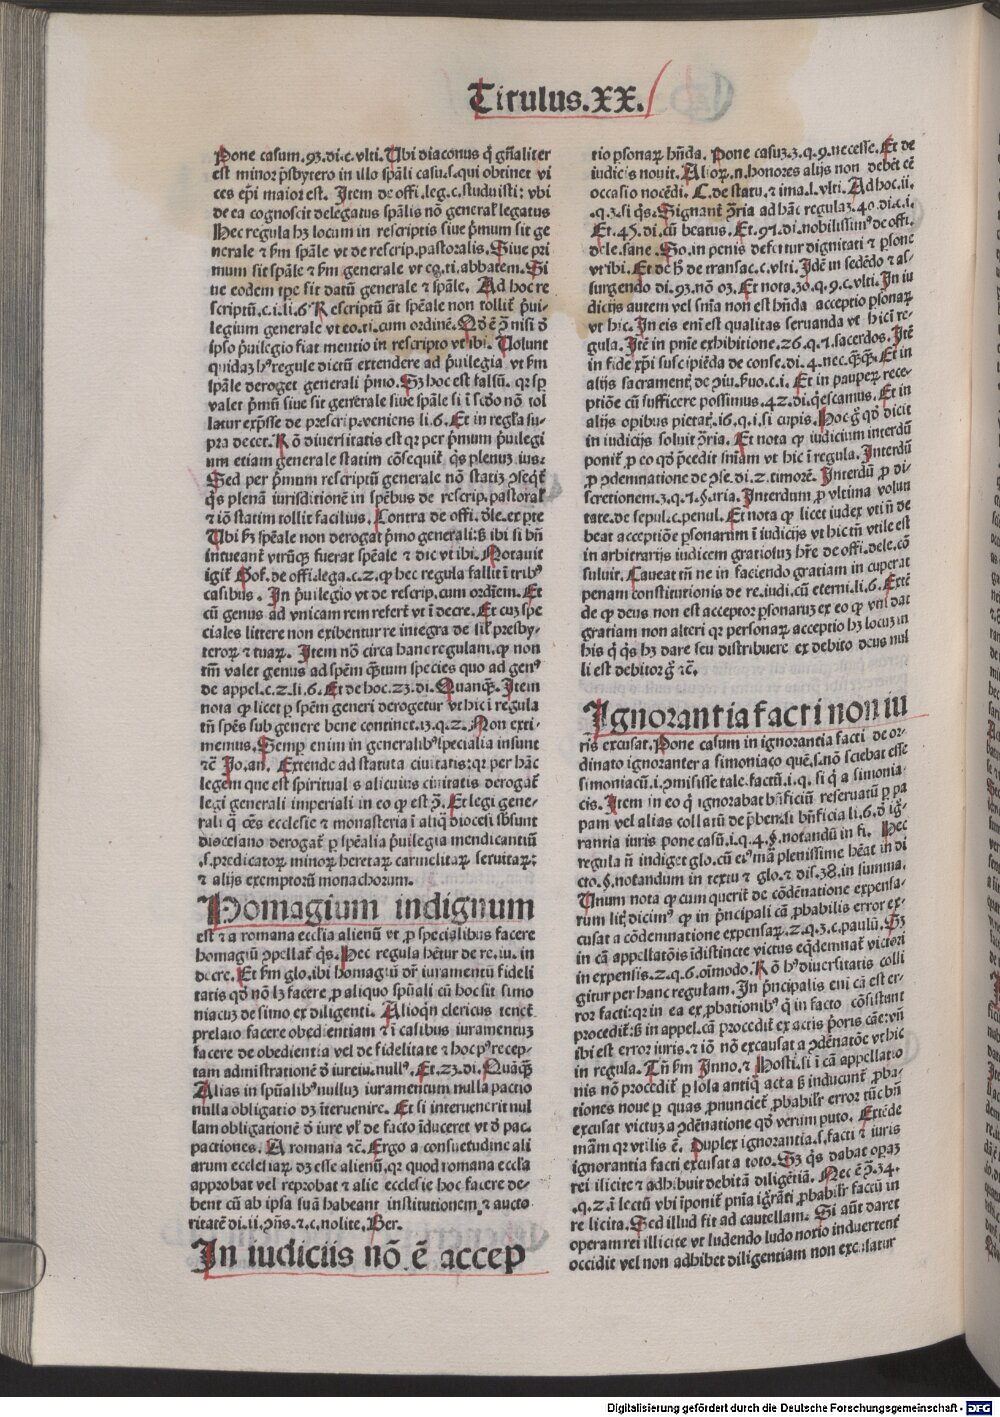 Titulus.XX.
Pone casum.93.di.c.vlti.Ubi diaconus q̄ gn̄aliter
est minor p̄sbytero in illo spāli casu.s.qui obtinet vi
ces ep̄i maior est. Item de offi.leg.c.studuisti: vbi
de ea cognoscit delegatus spālis nō general̄ legatus
Hec regula hꝫ locum in rescriptis siue p̄mum sit ge
nerale ⁊ s̄m spāle vt de rescrip.pastoralis. Siue pri
mum sit spāle ⁊ s̄m generale vt eo.ti.abbatem. Si
ue eodem tp̄e sit datū generale ⁊ spāle. Ad hoc re
scriptū.c.i.li.6 Rescriptū āt spēale non tollit p̄ui
legium generale vt eo.ti.cum ordinē.
ipso p̄uilegio fiat mentio in rescripto vt ibi. Uolunt
quidaꝫ hꝰ regule dictū extendere ad p̄uilegia vt s̄m
spāle deroget generali p̄mo. Sꝫ hoc est falsū. qꝛ sp̄
valet p̄mū siue sit generale siue spāle si ī sc̄do nō tol
latur exp̄sse de prescrip.veniens li.6. Et in regl̄a su
pra decet. Rō diuersitatis est qꝛ per p̄mum p̄uilegi
um etiam generale statim cōsequit᷑ q̄s plenuꝫ ius:
Sed per p̄mum rescriptū generale nō statiꝫ ꝯseqt᷑
q̄s plenā iurisditionē in spēbus de rescrip.pastoral̄
⁊ iō statim tollit facilius. Contra de offi. dl̄e.ex pte
Ubi s̄m spēale non derogat p̄mo generali: sꝫ ibi si bn̄
intueant᷑ vtrūqꝫ fuerat spēale ⁊ dic vt ibi. Notauit
igit᷑ Gof. de offi.lega.c.2.ꝙ hec regula fallit ī tribꝰ
casibus. In p̄uilegio vt de rescrip.cum ordīem. Et
cū genus ad vnicam rem refert᷑ vt ī decre. Et cuꝫ spe
ciales littere non exibentur re integra de sil̄ presby-
teroꝝ ⁊ tuaꝝ. Item nō circa hanc regulam.ꝙ non
tm̄ valet genus ad spēm q̄stum species quo ad genꝰ
de appel.c.2.li.6. Et de hoc.23.di.Quanq̄. Item
nota ꝙ licet ꝑ spēm generi derogetur vt hic ī regula
tn̄ spēs sub genere bene continet᷑.13.q.2. Non exti-
memus. Semꝑ enim in generalibꝰ specialia insunt
⁊c̄ Jo.an. Extende ad statuta ciuitatis: qꝛ per hāc
legem que est spiritualis alicuius ciuitatis derogat᷑
legi generali imperiali in eo ꝙ est ꝯ̄. Et legi gene-
rali q̄ oēs ecclesie ⁊ monasteria ī aliq̄ diocesi sb̄sunt
diocesano derogat᷑ ꝑ spēalia p̄uilegia mendicantiū
.s.predicatoꝝ minoꝝ heretaꝝ carmelitaꝝ seruitaꝝ:
⁊ alijs exemptorū monachorum.
Homagium indignum
est ⁊ a romana eccl̄ia alienū vt ꝓ specialibus facere
homagiū ꝯpellat᷑ q̄s. Hec regula hētur de re.iu. in
decre. Et s̄m glo.ibi homagiū dr̄ iuramentū fideli
tatis qd̄ nō lꝫ facere ꝓ aliquo spūali cū hoc sit simo
niacuꝫ de simo ex diligenti. Alioqn̄ clericus tenet᷑
prelato facere obedientiam ⁊ ī casibus iuramentuꝫ
facere de obedientia vel de fidelitate ⁊ hoc pꝰ recep-
tam administrationē d̄ iureiu.nullꝰ. Et.23.di.Quāq̄
Alias in spūalibꝰ nulluꝫ iuramentum nulla pactio
nulla obligatio dꝫ īteruenire. Et si interuenerit nul
lam obligationē d̄ iure vl̄ de facto īduceret vt d̄ pac.
pactiones. A romana ⁊c̄. Ergo a consuetudine ali
arum ecclesiaꝝ dꝫ esse alienū.qꝛ quod romana eccl̄a
approbat vel reprobat ⁊ alie ecclesie hoc facere de-
bent cū ab ipsa suā habeant institutionem ⁊ aucto
ritatē di.ii.ꝯn̄s.⁊.c.nolite. Ber.
In iudiciis nō ē accep
tio ꝑsonaꝝ hn̄da. Pone casuꝫ.3.q.9.necesse. Et de
iudicijs nouit. Alioꝝ.n.honores alijs non debēt eē
occasio nocēdi. C.de statu.⁊ ima.l.vlti. Ad hoc.ii.
.q.3.si q̄s. Signant᷑ ꝯ̄ria ad hāc regulaꝫ.40.di.c.i.
Et.45.di.cū beatus. Et.91.di.nobilissimꝰ de offi.
dele.sane. So.in penis defertur dignitati ⁊ ꝑsone
vt ibi. Et de h̄ de transac.c.vlti. Idē in sedēdo ⁊ as-
surgendo di.93.nō oꝫ. Et nota.30.q.9.c.vlti. In iu
dicijs autem vel sn̄ia non est hn̄da acceptio ꝑsonaꝝ
vt hic. In eis eni est qualitas seruanda vt hic ī re-
gula. Itē in pnīe exhibitione.26.q.7.sacerdos. Itē
in fide xp̄i suscipiēda de conse.di.4.nec.q̄sq̄. Et in
alijs sacrament᷑ de ꝯiu.s̄uo.c.i. Et in pauperꝝ rece-
ptiōe cū sufficere possimus.42.di.q̄escamus. Et in
alijs opibus pietat᷑.16.q.i.si cupis. Hoc ḡ qd̄ dicit
in iudicijs soluit ꝯ̄ria. Et nota ꝙ iudicium interdū
ponit᷑ ꝓ eo qd̄ p̄cedit sn̄iam vt hic ī regula. Interdū
ꝓ ꝯdemnatione de ꝯse.di.2.timorē. Interdū ꝓ di-
scretionem.3.q.7.§.tria. Interdum ꝓ vltima volun
tate.de sepul.c.penul. Et nota ꝙ licet iudex vti n̄ de
beat acceptiōe ꝑsonarum ī iudicijs vt hic tn̄ vtile est
in arbitrarijs iudicem gratiosuꝫ hr̄e de offi.dele.cō
suluit. Caueat tn̄ ne in faciendo gratiam incuperat
penam constitutionis de re.iudi.cū eterni.li.6. Extē
de ꝙ deus non est acceptor ꝑsonaruꝫ ex eo ꝙ vni dat
gratiam non alteri qꝛ personaꝝ acceptio hꝫ locuꝫ in
his q̄ q̄s hꝫ dare seu distribuere ex debito deus nul
li est debitor ḡ ⁊c̄.
Ignorantia facti non iu
ris excusat. Pone casum in ignorantia facti de or-
dinato ignoranter a simoniaco quē.s.nō sciebat esse
simoniacū.i.ꝯmisisse tale.factū.i.q.i.si q̄ a simonia-
cis. Item in eo q̄ ignorabat bn̄ficiū reseruatū ꝑ pa
pam vel alias collatū de p̄ben.si bn̄ficia li.6.d̄ ig-
rantia iuris pone casū.i.q.4.§.notandū in fi. Hec
regula n̄ indiget glo.cū eiꝰ mā plenissime hēat᷑ in di
cto.§.notandum in textu ⁊ glo.⁊ dis.38.in summa.
Unum nota ꝙ cum querit᷑ de cōdēnatione expensa-
rum lit᷑ dicimꝰ ꝙ in p̄ncipali cā ꝓbabilis error ex-
cusat a cōdemnatione expensaꝝ.2.q.3.c.paulū. Sꝫ
in cā appellatōis īdistincte victus eqdemnat᷑ victori
in expensis.2.q.6.oīmodo. Rō hꝰ diuersitatis colli
gitur per hanc regulam. In p̄ncipalis eni cā est er-
ror facti: qꝛ in ea ex ꝓbationibꝰ q̄ in facto cōsistunt
procedit᷑: sꝫ in appel.cā procedit᷑ ex actis p̄oris cāe: vn̄
ibi est error iuris.⁊ iō nō excusat a ꝯdēnatōe vt hic
in regula. Tn̄ s̄m Inno.⁊ Hosti.si ī cā appellatio
nis nō procedit᷑ ꝑ sola antiq̄ acta sꝫ inducunt᷑ ꝓba-
tiones noue ꝑ quas ꝓnunciet᷑ ꝓbabil̄r error tūc bn̄
excusat victuꝫ a ꝯdēnatione qd̄ verum puto. Extēde
mām qꝛ vtilis ē. Duplex ignorantia.s.facti ⁊ iuris
ignorantia facti excusat a toto. Sꝫ q̄s dabat opaꝫ
rei ilicite ⁊ adhibuit debitā diligētiā. Nec ē ꝯ̄.34.
.q.2.ī lectū vbi īponit᷑ pnīa igrāti ꝓbabil̄r factū in
re licita. Sed illud fit ad cautellam. Si aūt daret
operam rei illicite vt ludendo ludo noxio induertent᷑
occidit vel non adhibet diligentiam non excusatur
Digitalisierung gefördert durch die Deutsche Forschungsgemeinschaft - DFG